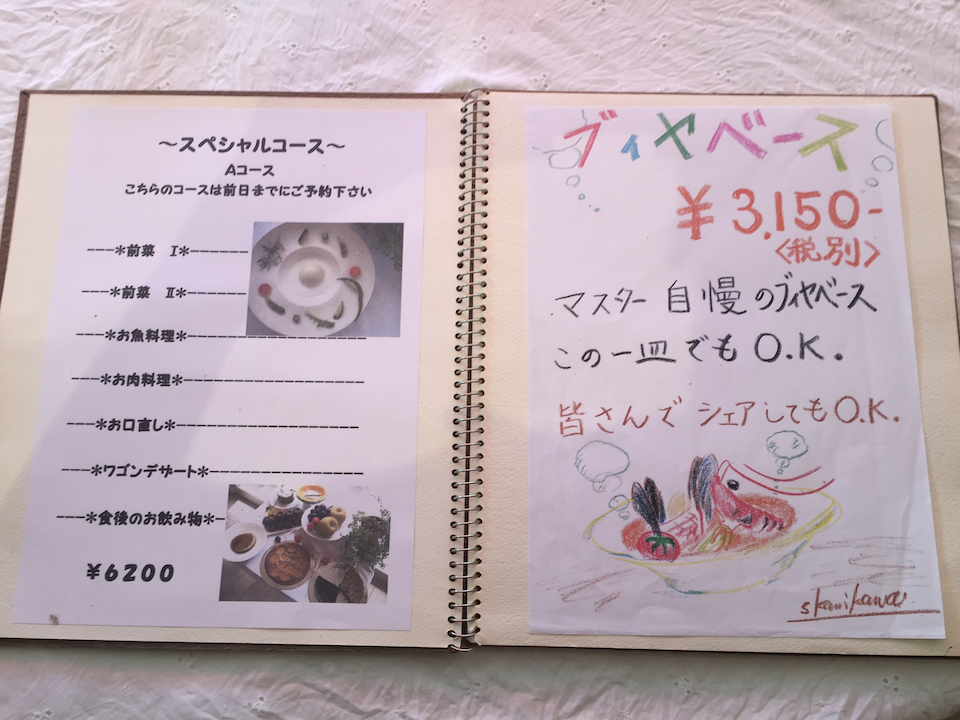 ～スペシャルコース～
Aコース
こちらのコースは前日までにご予約下さい
---*前菜　Ⅰ*------
---*前菜　Ⅱ*------
---*お魚料理*------------------
---*お肉料理*------------------
---*お口直し*------------------
---*ワゴンデザート*---------------
---*食後のお飲み物*-
¥6200
ブィヤベース
¥3,150-
〈税別〉
マスター自慢のブィヤベース
この一皿でもO.K.
皆さんでシェアしてもO.K.
s kamikawa